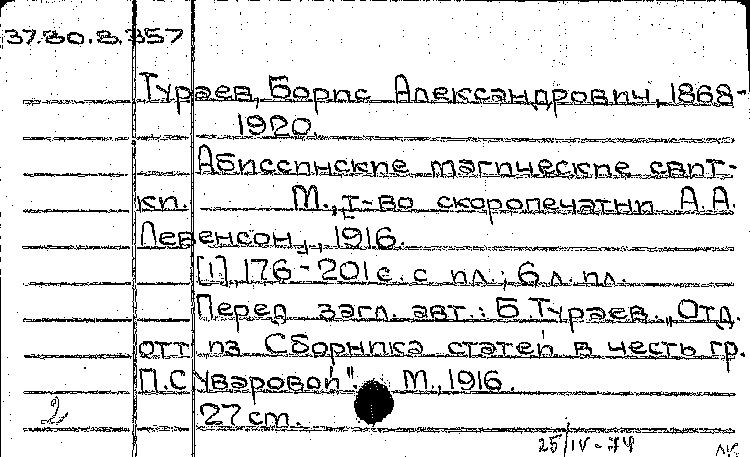 37.80.8.357
Тураев, Борис Александрович, 1868-
1920.
Абиссинские магические свит-
ки. М., т-во скоропечатни А.А.
Левенсон, 1916.
[1], 176-201 с. с ил.; 6 л. ил.
Перед загл. авт.: Б. Тураев. „Отд.
отт из Сборника статей в честь гр.
П.С Уваровой". М., 1916.
2 27 cm.
25/IV-74